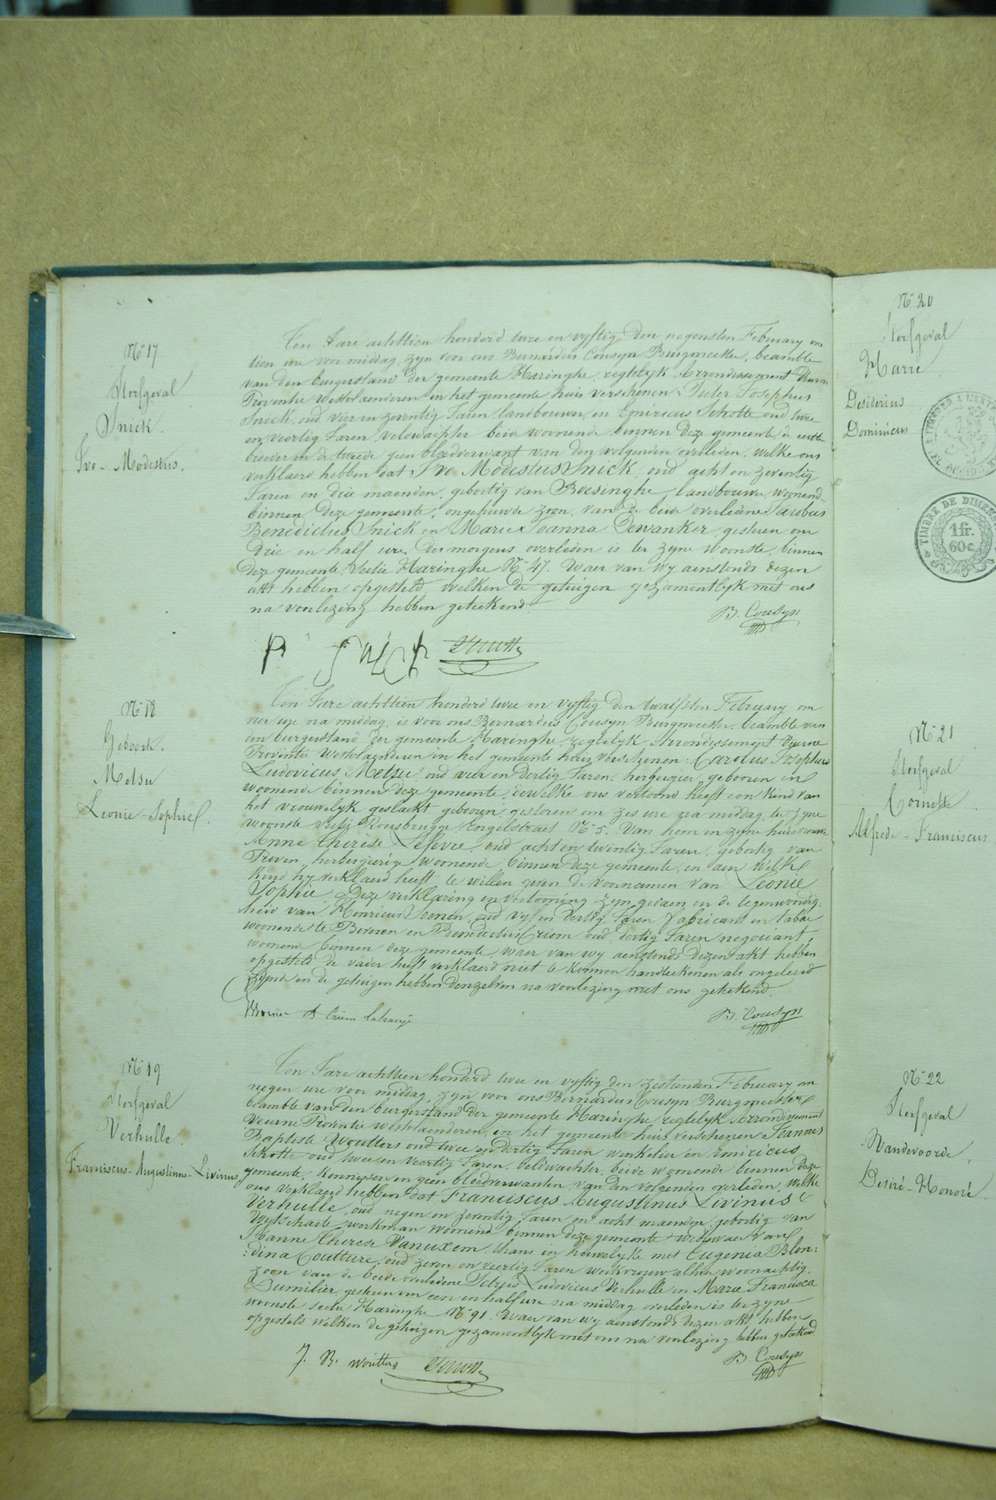 N° 17
Sterfgeval
Snick
Ivo-Modestus.
Ten Jare achttien honderd twee en vyftig den negensten February om
tien ure voor middag, zyn voor ons Bernardus Cousyn Burgmeester, beambte
van den burgerstand der gemeente Haringhe, regtelyk Arrondissement Veurne
Provintie Westvlaenderen in het gemeente huis verschenen Pieter Josephus
Snick, oud vier en zeventig Jaren, landbouwer, en Emericus Schotte oud twee
en veertig Jaren, veldwachter beide woonende binnen deze gemeente de eerste
broeder en de tweede geen bloedverwant van den volgenden overleden, welke ons
verklaerd hebben dat Ivo Modestus Snick, oud acht en zeventig
Jaren en drie maenden, geboortig van Boesinghe, landbouwer, woonende
binnen deze gemeente, ongehuwde zoon van de beide overledene Jacobus
Benedictus Snick en Marie Joanna Dewanker, gisteren om
drie en half ure des morgens overleden is ter zyne woonste binnen
deze gemeente, sectie Haringhe N° 47. Waer van wy aenstonds dezen
akt hebben opgesteld welken de getuigen gezamentlyk met ons
na voorlezing hebben geteekend
B. Cousyn
P Snick Schotte
N° 18
Geboorte.
Metsu
Leonie-Sophie.
Ten Jare achttien honderd twee en vyftig den twaelfsten February om
vier ure na middag, is voor ons Bernardus Cousyn Burgmeester, beambte van
den burgerstand der gemeente Haringhe, regtelyk Arrondissement Veurne
Provintie Westvlaenderen in het gemeente huis verschenen Carolus Josephus
Ludovicus Metsu oud vier en dertig Jaren, herbergier, geboren en
woonende binnen deze gemeente, dewelke ons vertoond heeft een kind van
het vrouwelyk geslacht geboren gisteren om zes ure na middag te zyne
woonste sectie Rousbrugge Engelstraet N° 5. Van hem en zyne huisvrouw
Anne Therese Lefevre, oud acht en twintig Jaren, geboortig van
Proven, herbergierige woonende binnen deze gemeente, en aen welke
kind hy verklaerd heeft te willen geven de voornamen van Leonie
Sophie. Deze verklaring en vertooning zyn gedaen in de tegenwoordig-
heid van Henricus oud vyf en dertig Jaren fabricant in tabac
woonende te Beveren en Benedictus Criem oud dertig Jaren negociant,
woonende binnen deze gemeente, waer van wy aenstonds dezen akt hebben
opgesteld de vader heeft verklaerd niet te konnen handteekenen als ongeleerd
zynde en de getuigen hebben denzelven na voorlezing met ons geteekend.
B. Cousyn
N° 19
Sterfgeval
Verhulle.
Franciscus-Augustinus-Livinus
Ten Jare achttien honderd twee en vyftig den zestienden February om
negen ure voor middag, zyn voor ons Bernardus Cousyn Burgmeester
beambte van den burgerstand der gemeente Haringhe, regtelyk Arrondissement
Veurne Provintie Westvlaenderen, in het gemeente huis verschenen Joannes
Baptiste Woutters oud twee en dertig Jaren winkelier en Emericus
Schotte oud twee en veertig Jaren, veldwachter, beide woonende binnen deze
gemeente, kennissen en geen bloedverwanten van den volgenden overleden, welke
ons verklaerd hebben dat Franciscus Augustinus Livinus
Verhulle, oud negen en zeventig Jaren en acht maenden, geboortig van
Wytschaete, werkman woonende binnen deze gemeente, weduwaer van
Joanne Therese Vanuxem, thans in houwelyke met Eugenia Blon-
dina Coutture, oud zeven en veertig Jaren, werkvrouw alhier woonachtig,
zoon van de beide overledene Petrus Ludovicus Verhulle en Marie Francisca
Dumilier gisteren om een en half ure na middag overleden is ter zyne
woonste sectie Haringhe N° 91. Waer van wy aenstonds dezen akt hebben
opgesteld welken de getuigen gezamentlyk met ons na voorlezing hebben geteekend
B. Cousyn
J. B. Woutters Schotte
N° 20
Sterfgeval
Marie
Desiderius
Dominicus
TIMBRE DE DIM
1 fr.
60 c.
N° 21
Sterfgeval
Cornette
Alfrede-Franciscus
N° 22
Sterfgeval
Vandevoorde,
Desiré-Honoré